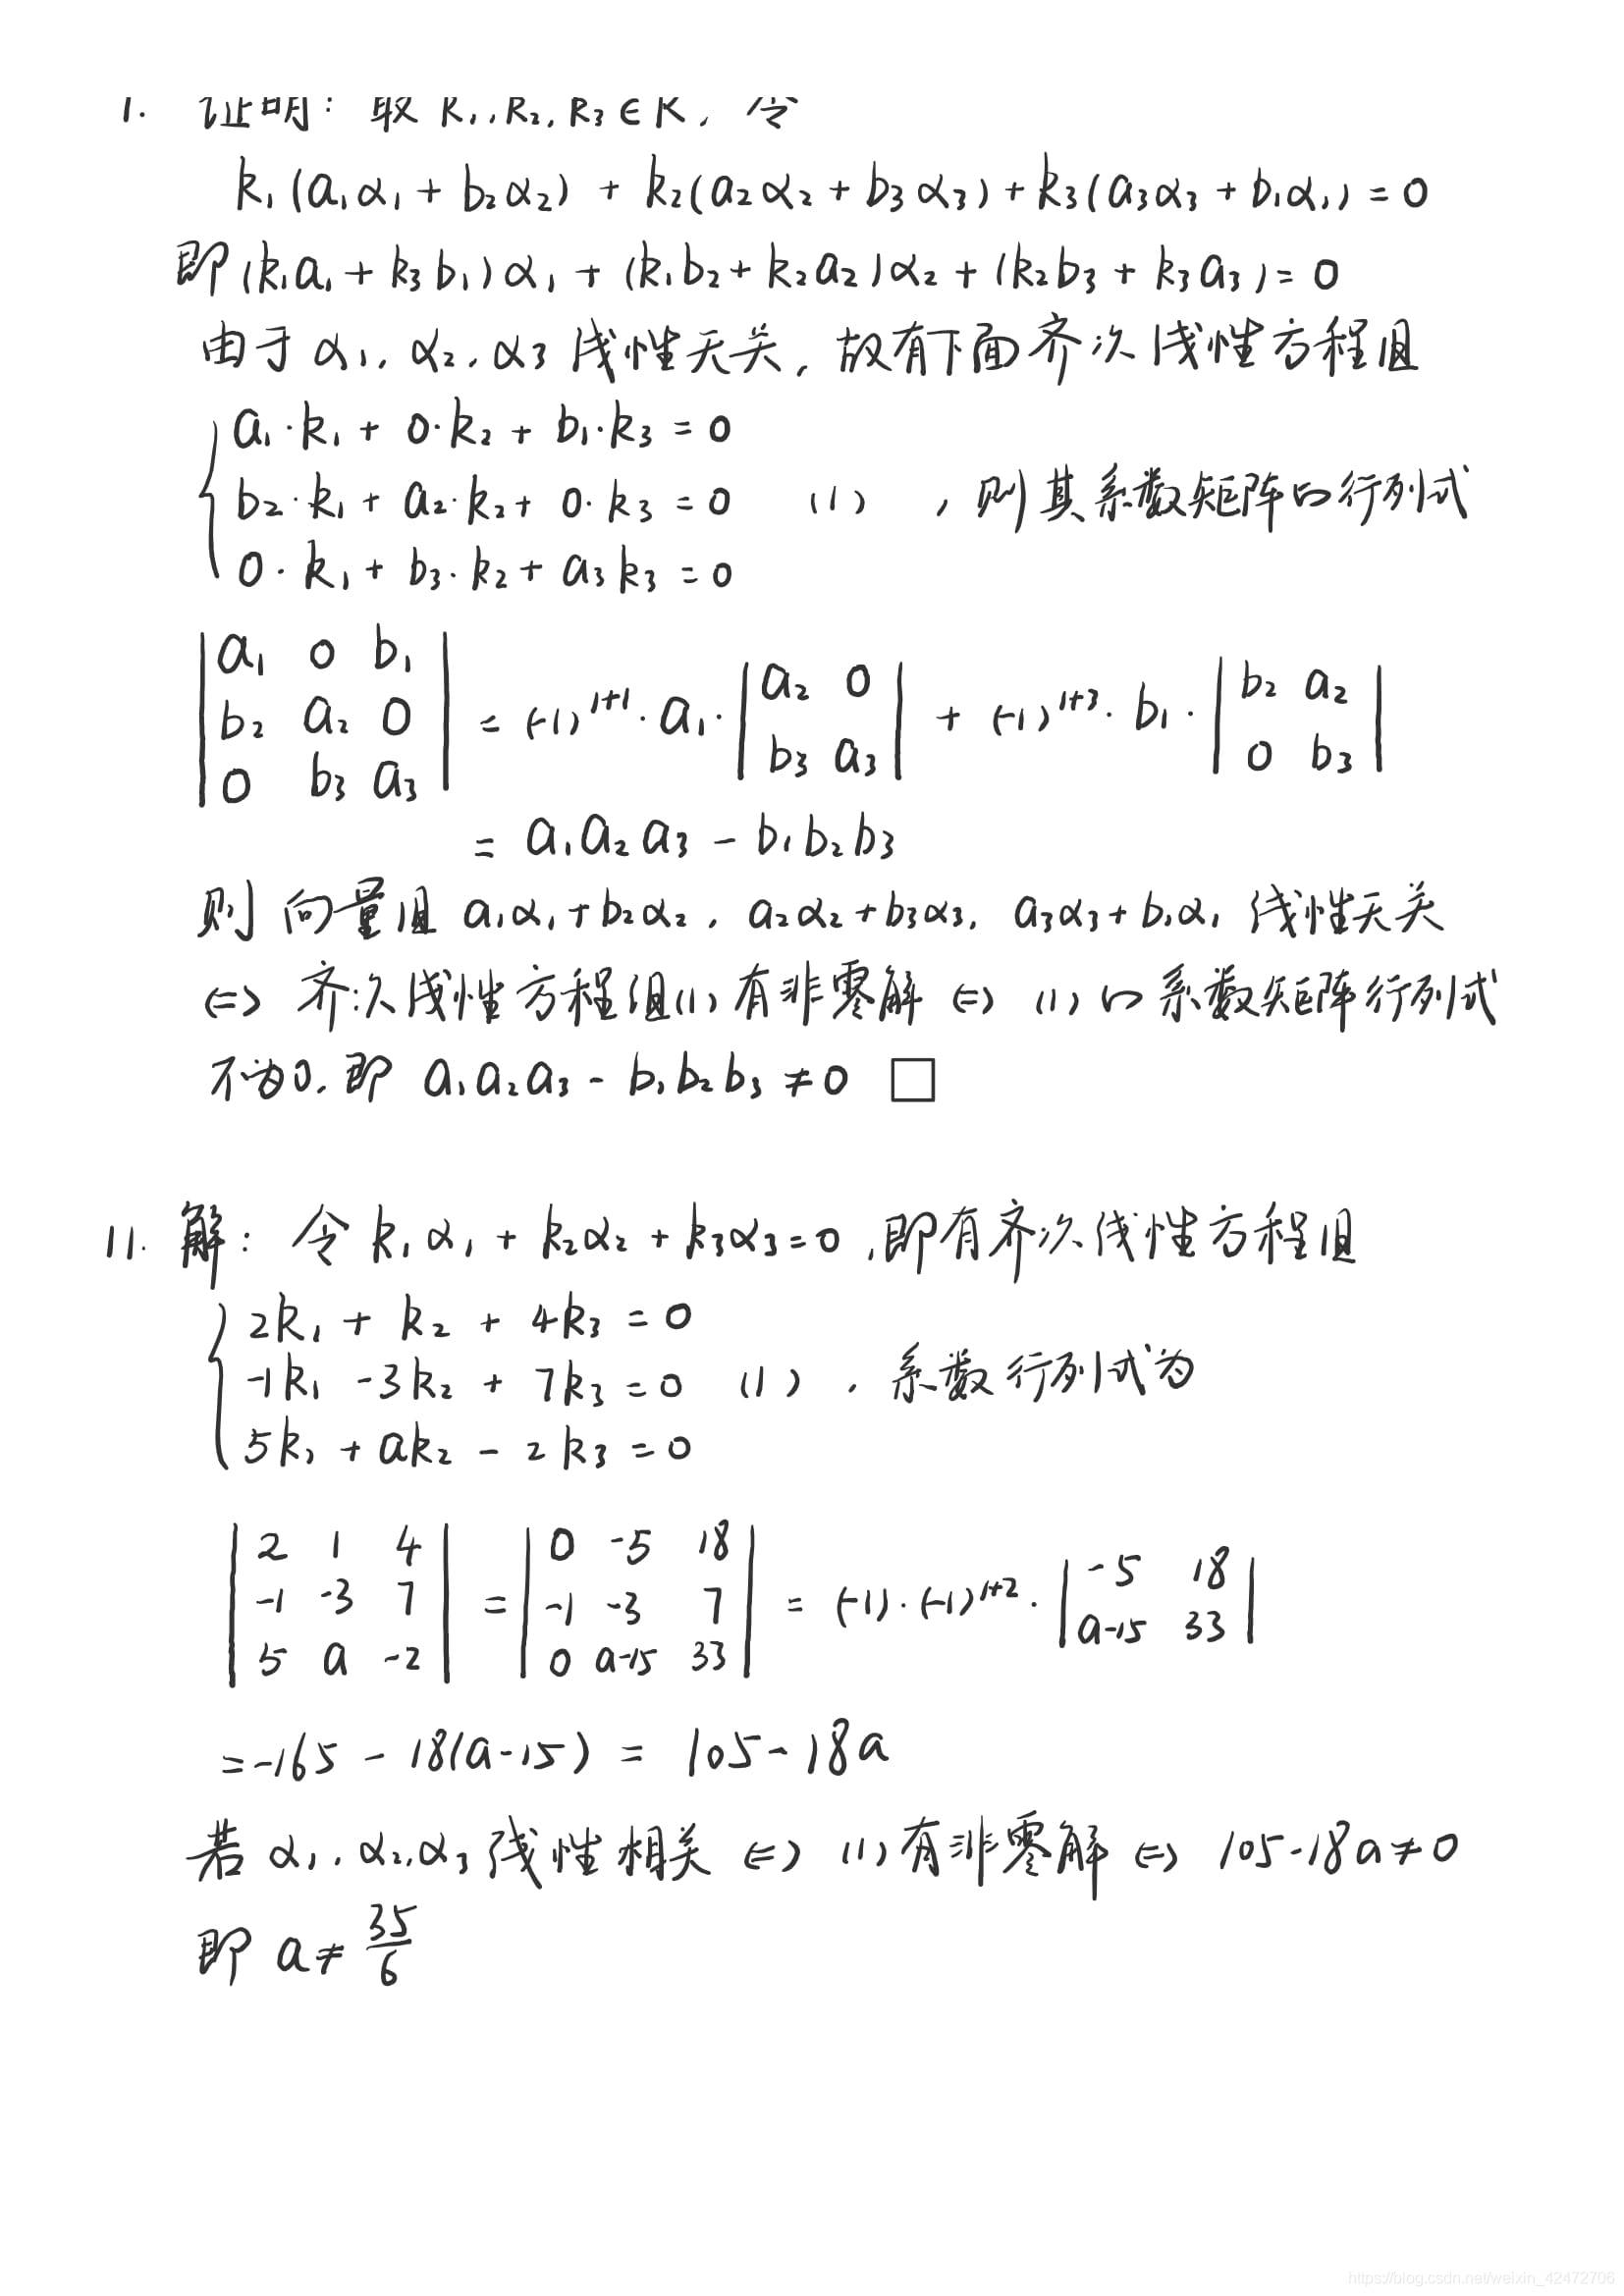 1. 证明: 取 k₁, k₂, k₃ ∈ K, 令
k₁(a₁α₁ + b₂α₂) + k₂(a₂α₂ + b₃α₃) + k₃(a₃α₃ + b₁α₁) = 0
即 (k₁a₁ + k₃b₁)α₁ + (k₁b₂ + k₂a₂)α₂ + (k₂b₃ + k₃a₃) = 0
由于 α₁, α₂, α₃ 线性无关, 故有下面齐次线性方程组
a₁·k₁ + 0·k₂ + b₁·k₃ = 0
b₂·k₁ + a₂·k₂ + 0·k₃ = 0 (1) , 则其系数矩阵的行列式
0·k₁ + b₃·k₂ + a₃k₃ = 0
| a₁ 0 b₁ |
| b₂ a₂ 0 | = (-1)¹⁺¹·a₁· | a₂ 0 | + (-1)¹⁺³·b₁· | b₂ a₂ |
| 0 b₃ a₃ | | b₃ a₃ | | 0 b₃ |
= a₁a₂a₃ - b₁b₂b₃
则向量组 a₁α₁+b₂α₂, a₂α₂+b₃α₃, a₃α₃+b₁α₁ 线性无关
⇔ 齐次线性方程组(1)有非零解 ⇔ (1)的系数矩阵行列式
不为0, 即 a₁a₂a₃ - b₁b₂b₃ ≠ 0 □
11. 解: 令 k₁α₁ + k₂α₂ + k₃α₃ = 0, 即有齐次线性方程组
2k₁ + k₂ + 4k₃ = 0
-1k₁ -3k₂ + 7k₃ = 0 (1) , 系数行列式为
5k₁ + ak₂ - 2k₃ = 0
| 2 1 4 | | 0 -5 18 |
| -1 -3 7 | = | -1 -3 7 | = (-1)·(-1)¹⁺²· | -5 18 |
| 5 a -2 | | 0 a-15 33 | | a-15 33 |
= -165 - 18(a-15) = 105 - 18a
若 α₁, α₂, α₃ 线性相关 ⇔ (1)有非零解 ⇔ 105-18a ≠ 0
即 a ≠ 35/6
https://blog.csdn.net/weixin_42472706